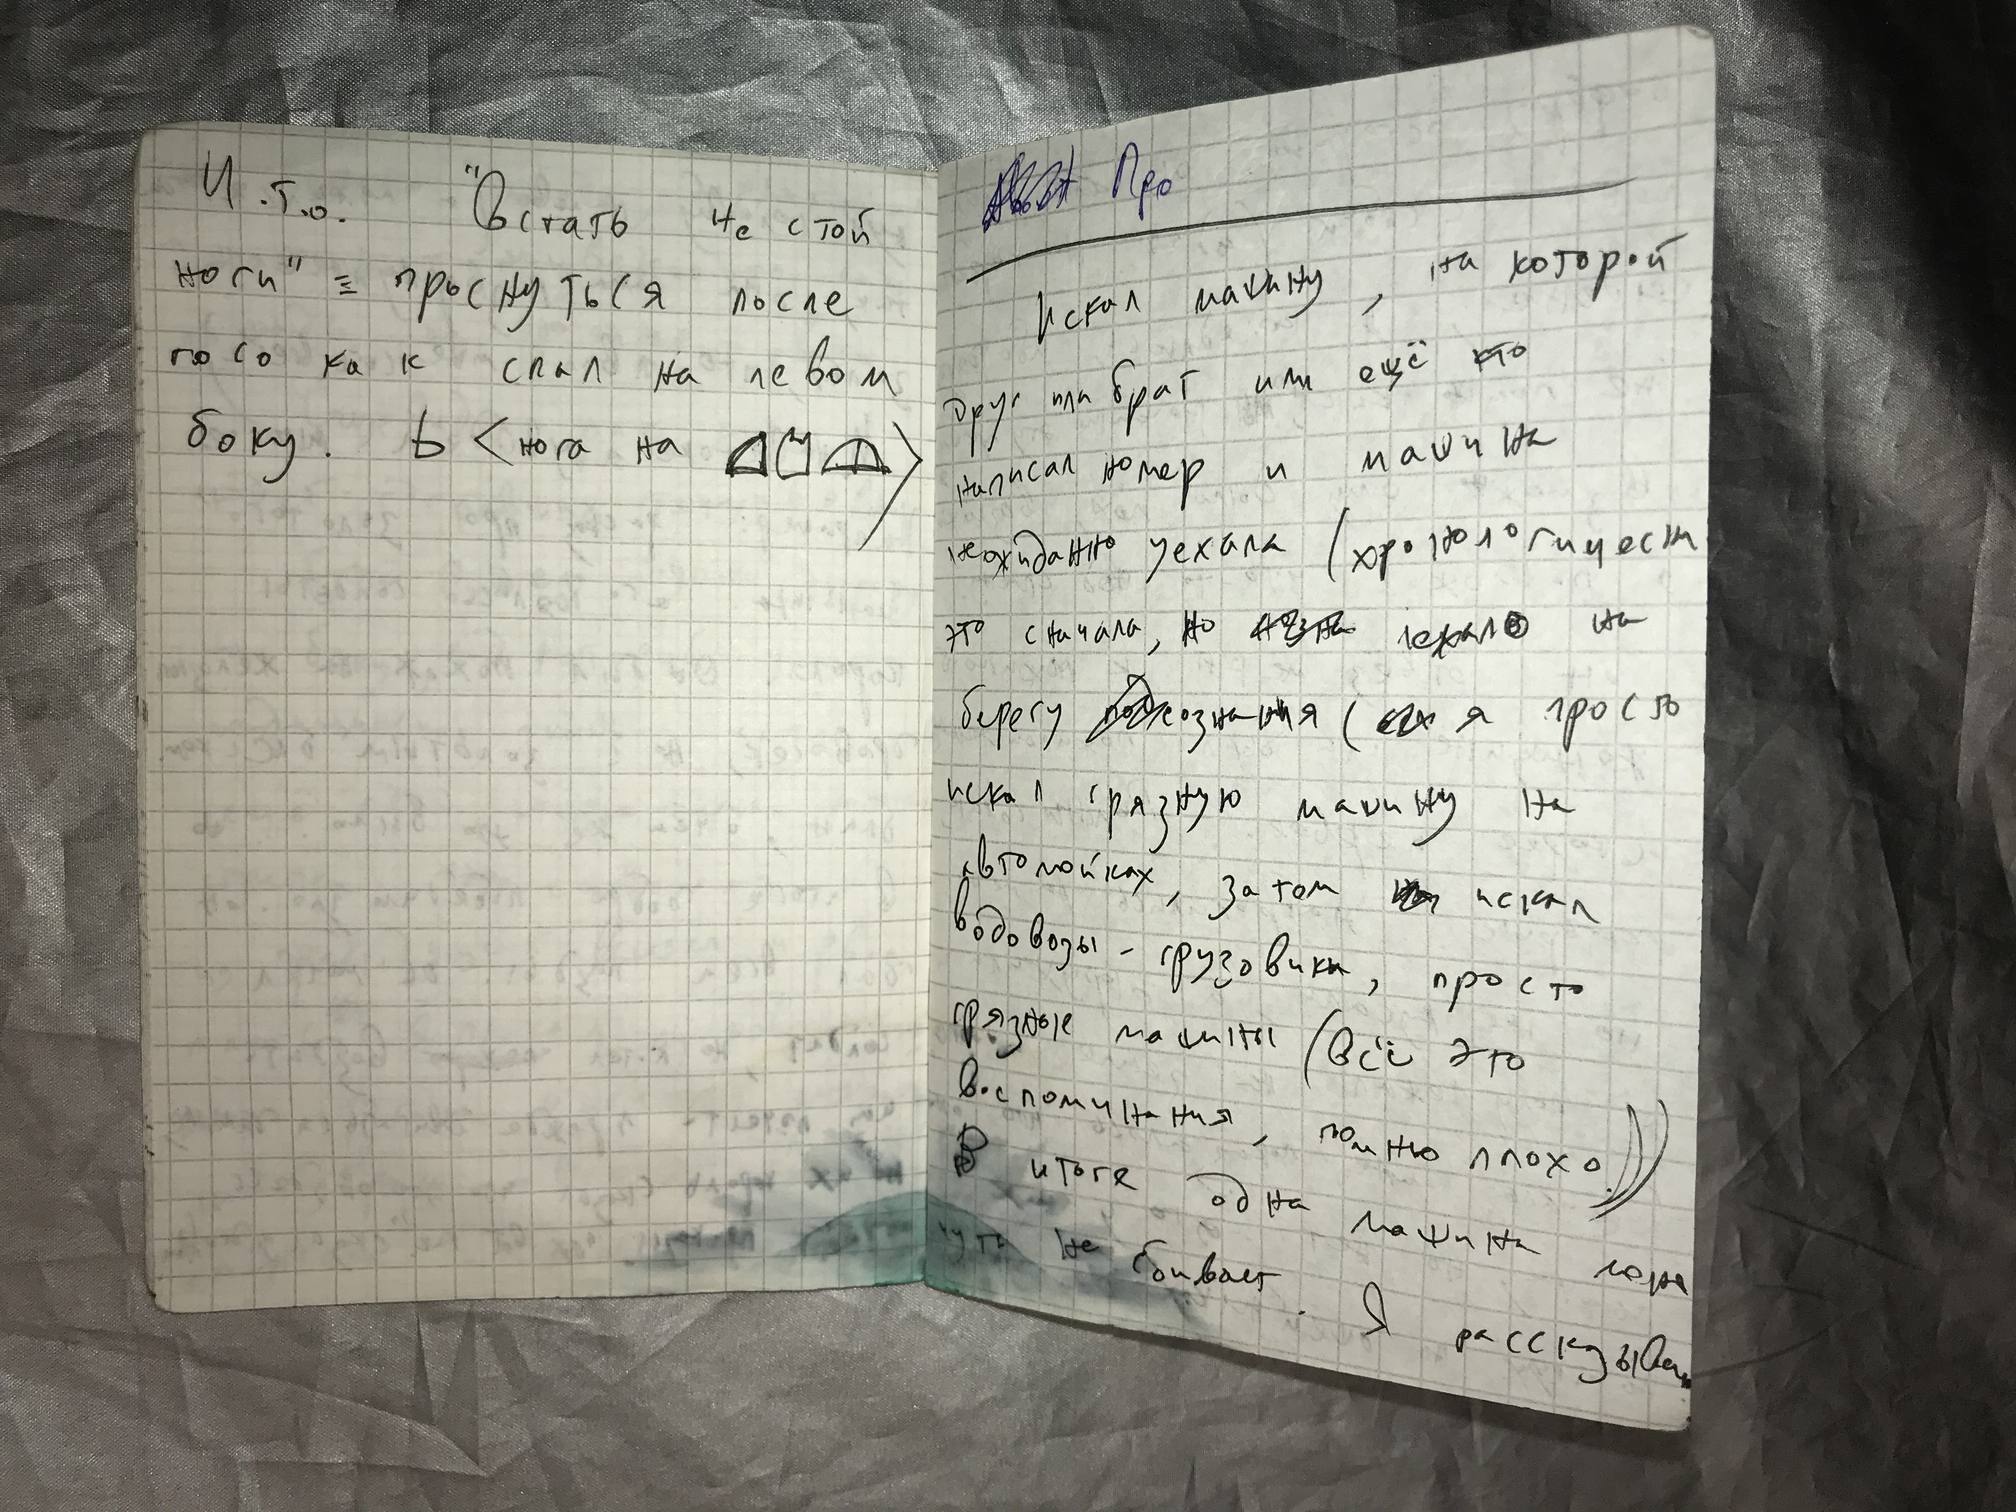 И.т.о. "Встать не стой
ноги" ≡ проснуться после
того как спал на левом
боку. Ь <нога на
Про
Искал машину, на которой
друг или брат или ещё кто
написал номер и машина
неожиданно уехала (хронологически
это сначала, но лежало на
берегу подсознания ( я просто
искал грязную машину на
автомойках, затем искал
водовозы - грузовики, просто
грязные машины (всё это
воспоминания, помню плохо.)))
В итоге одна машина меня
чуть не сбивает. Я рассказываю